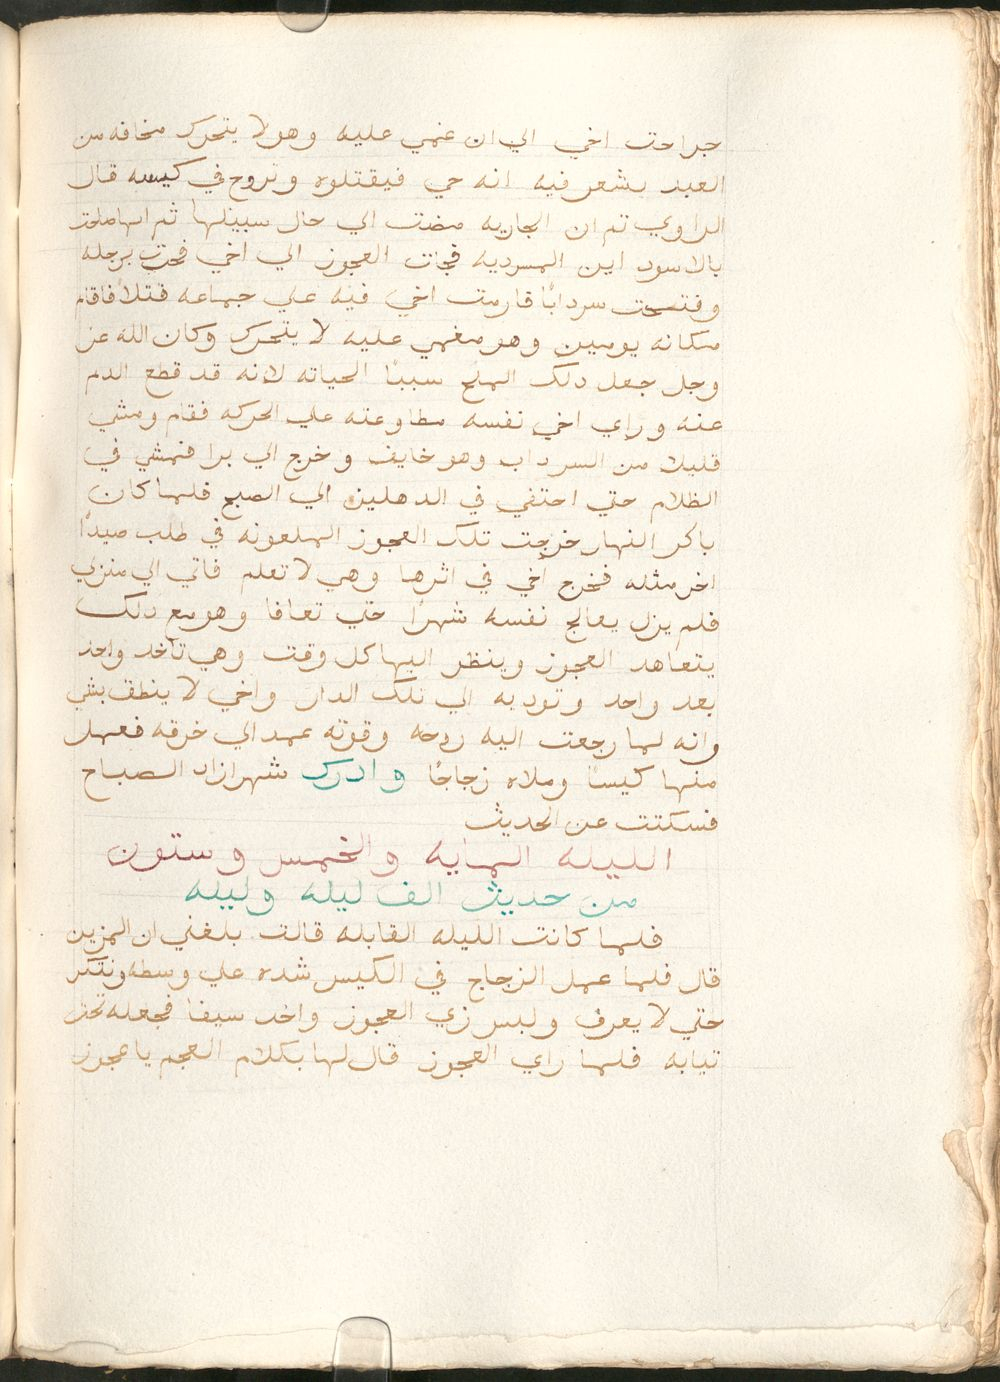 جراحت اخي الي ان غمي عليه وهو لا يتحرك مخافه من
العبد يشعر فيه انه حي فيقتلوه وتروح في كيسه قال
الراوي ثم ان الجاريه مضت الي حال سبيلها ثم انها صاحت
بالاسود اين المسرديه فجات العجوز الي اخي فجرت برجله
وفتحت سردابًا فارمت اخي فيه علي جماعه قتلاً فاقام
مكانه يومين وهو مغمي عليه لا يتحرك وكان الله عز
وجل جعل دلك الملح سببًا لحياته لانه قد قطع الدم
عنه وراي اخي نفسه مطاوعته علي الحركه فقام ومشي
قليلا من السرداب وهو خايف وخرج الي برا فمشي في
الظلام حتي احتفي في الدهليزه الي الصبح فلما كان
باكر النهار خرجت تلك العجوز الملعونه في طلب صيدًا
اخر مثله فخرج اخي في اثرها وهي لا تعلم فاتي الي منزلي
فلم يزل يعالج نفسه شهرًا حتي تعافا وهو مع دلك
يتعاهد العجوز وينظر اليها كل وقت وهي تأخد واحد
بعد واحد وتوديه الي تلك الدار واخي لا ينطق بشي
وانه لما رجعت اليه روحه وقوته عمد الي خرقه فعمل
منها كيسًا وملاه زجاجًا وادرك شهرازاد الصباح
فسكتت عن الحديث
الليله المايه والخمس وستون
من حديث الف ليله وليله
فلما كانت الليله القابله قالت بلغني ان المزين
قال فلما عمل الزجاج في الكيس شده علي وسطه وتنكر
حتي لا يعرف ولبس زي العجوز واخد سيفا فجعله تحت
تيابه فلما راي العجوز قال لها بكلام العجم يا عجوز